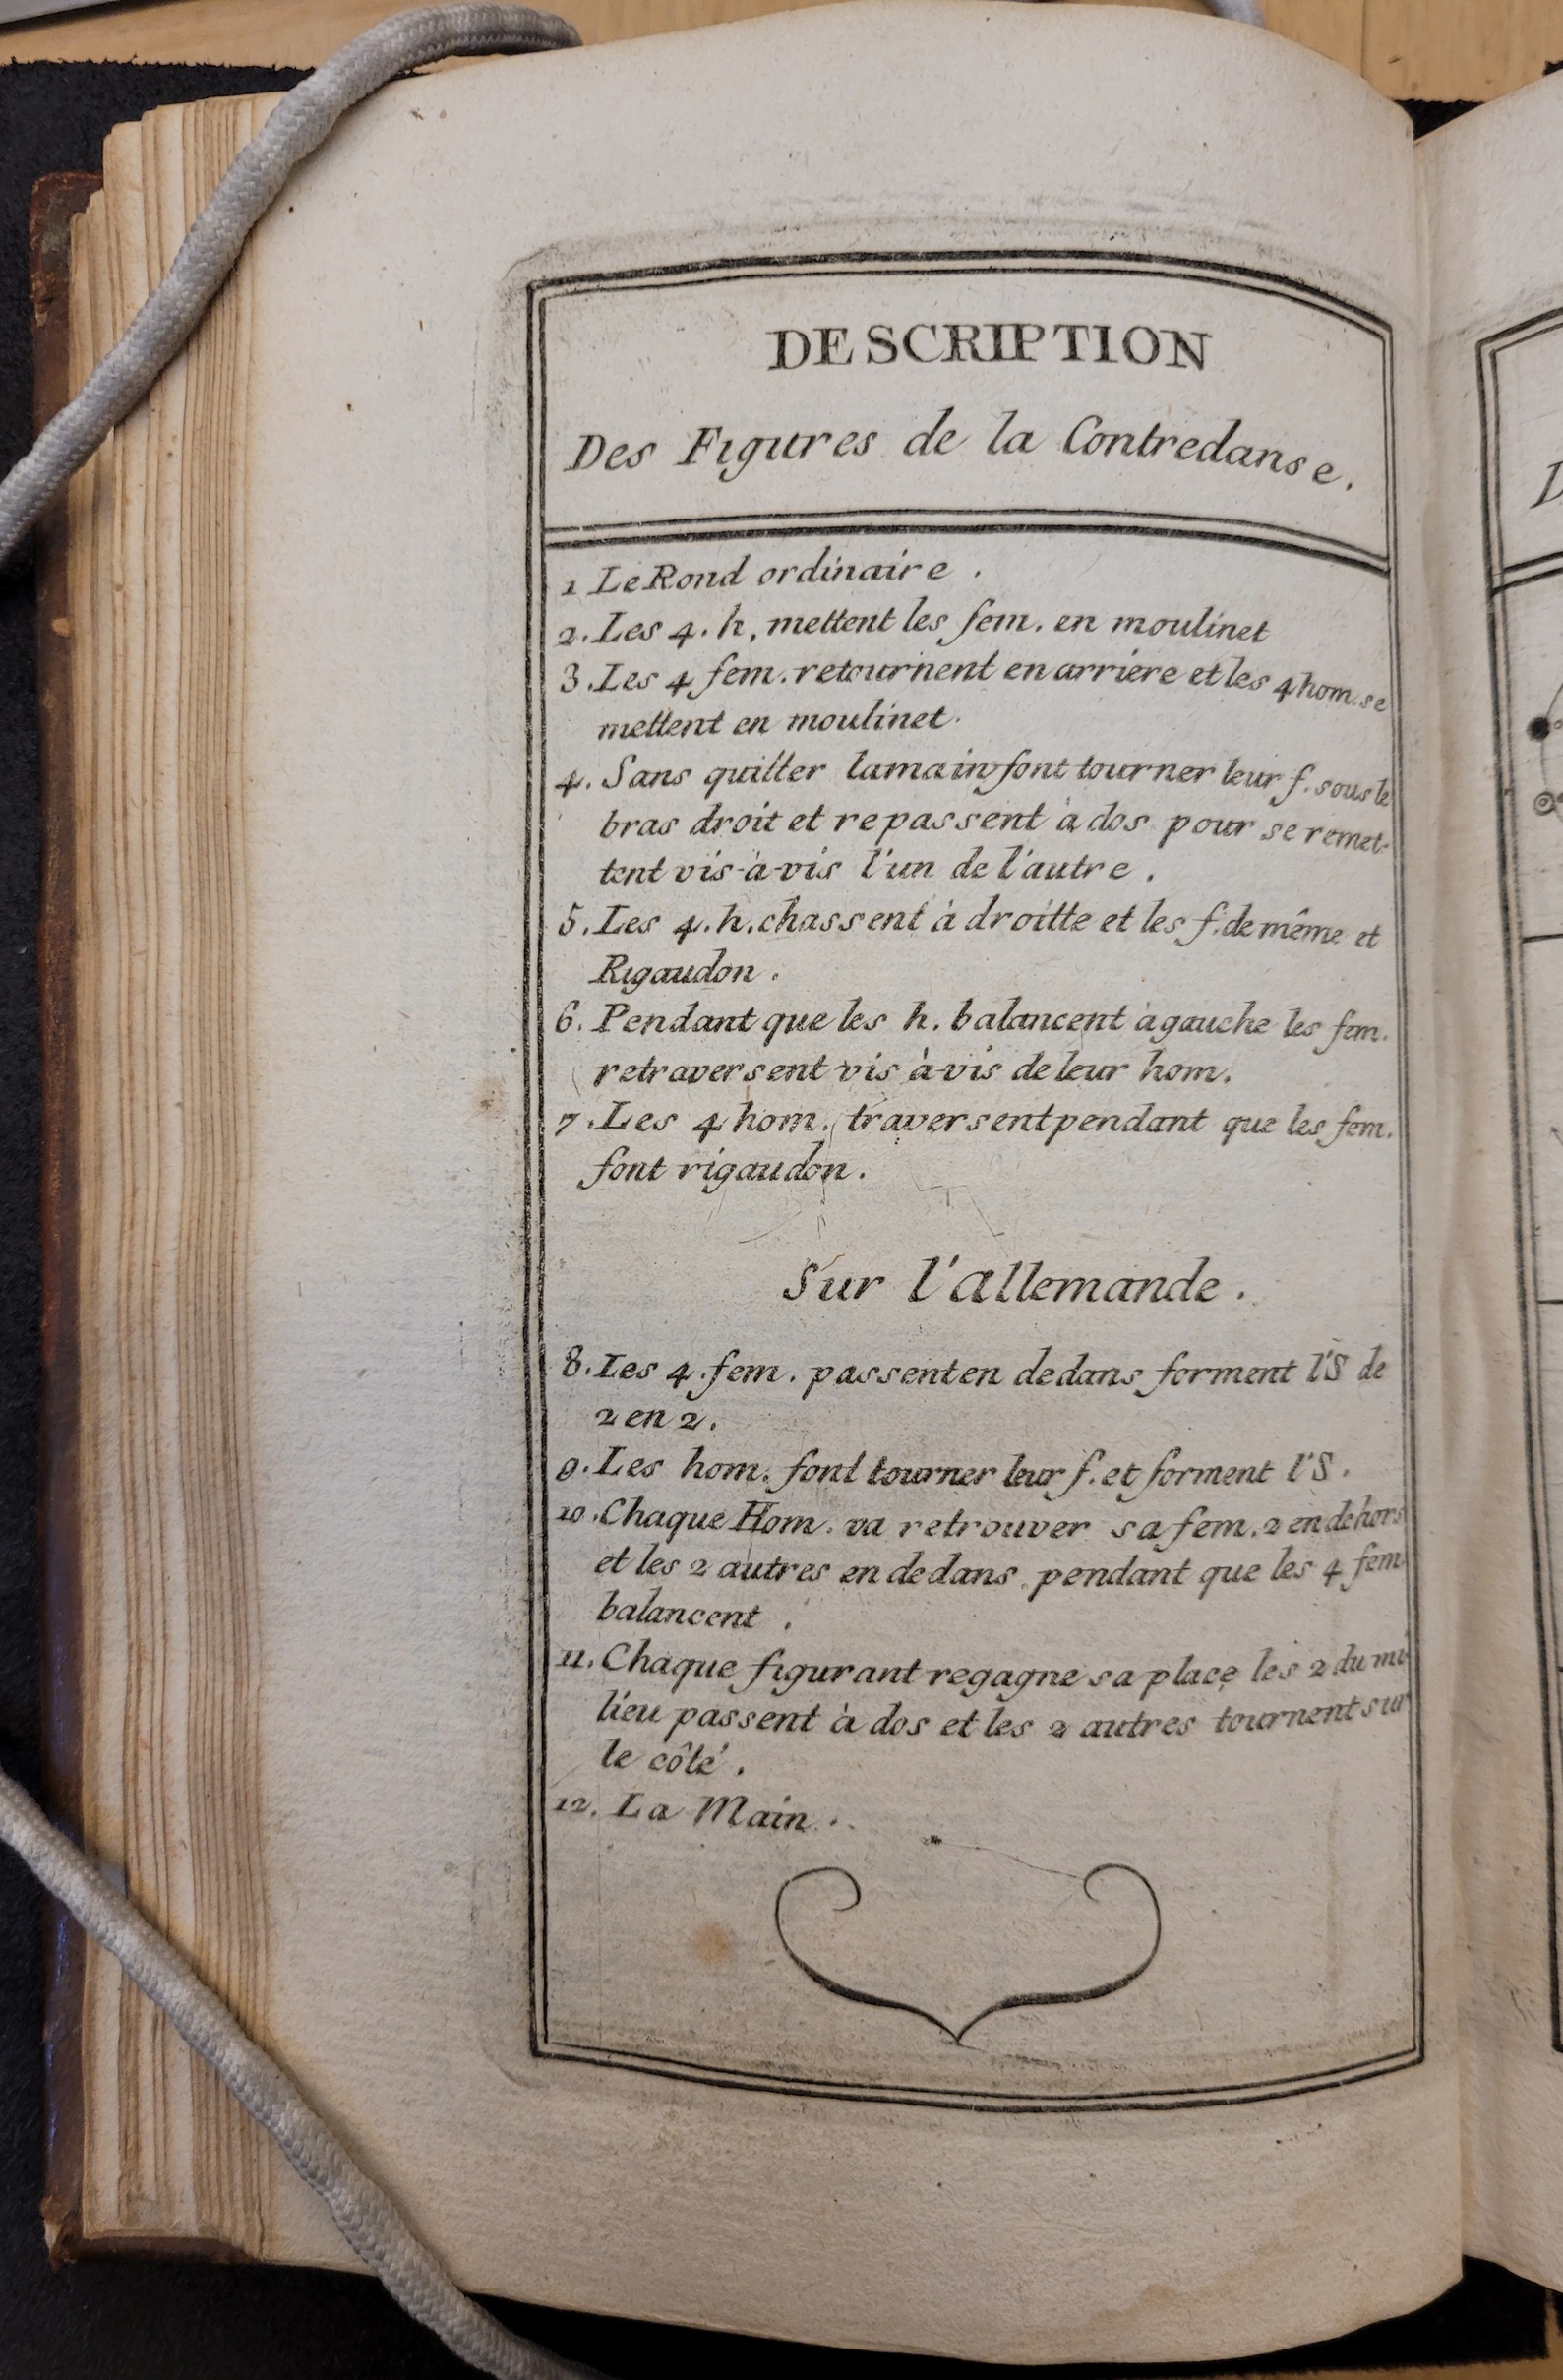 DESCRIPTION
Des Figures de la Contredanse.
1 Le Rond ordinaire.
2. Les 4. h, mettent les fem. en moulinet
3. Les 4 fem. retournent en arriere et les 4 hom. se
mettent en moulinet.
4. Sans quitter la main font tourner leur f. sous le
bras droit et repassent à dos pour se remet-
tent vis-à-vis l'un de l'autre.
5. Les 4. h. chassent à droitte et les f. de même et
Rigaudon.
6. Pendant que les h. balancent à gauche les fem.
retraversent vis à-vis de leur hom.
7. Les 4 hom. traversent pendant que les fem.
font rigaudon.
Sur l'allemande.
8. Les 4. fem. passent en dedans forment l'S de
2 en 2.
9. Les hom. font tourner leur f. et forment l'S.
10. Chaque Hom. va retrouver sa fem. 2 en dehors
et les 2 autres en dedans pendant que les 4 fem
balancent.
11. Chaque figurant regagne sa place les 2 du mi
lieu passent à dos et les 2 autres tournent sur
le côté.
12. La Main.